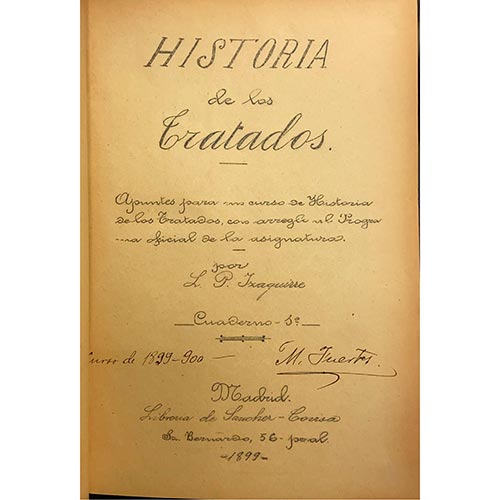 HISTORIA
de los
Tratados.
Apuntes para un curso de Historia
de los Tratados, con arreglo al Progra
ma oficial de la asignatura.
por
L. P. Izaguirre
Cuaderno - 5º
Curso de 1899-900 — M. Fuertes.
Madrid.
Libreria de Sanchez-Covisa
Sn. Bernardo, 56 - pral.
-1899-